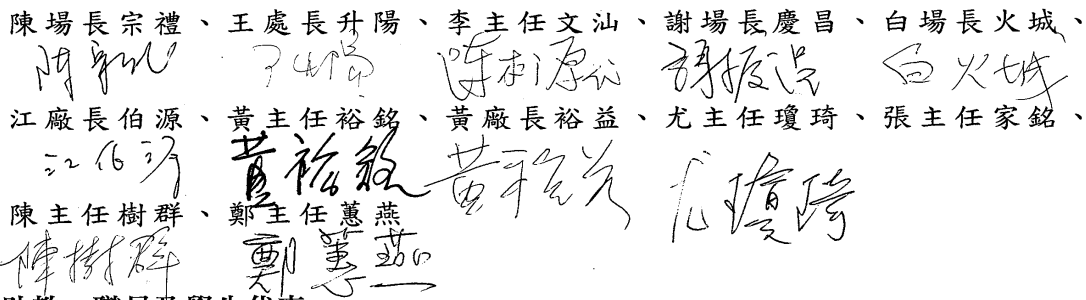 陳場長宗禮、王處長升陽、李主任文汕、謝場長慶昌、白場長火城、
陳 王升陽 陳樹源代 謝振昌 白火城
江廠長伯源、黃主任裕銘、黃廠長裕益、尤主任瓊琦、張主任家銘、
江伯源 黃裕銘 黃裕益 尤瓊琦
陳主任樹群、鄭主任蕙燕
陳樹群 鄭蕙燕